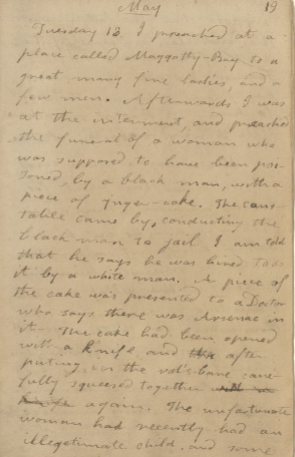 May 19
Tuesday 12. I preached at a
place called Maggotty-Bay to a
great many fine ladies, and a
few men. Afterwards I was
at the interment, and preached
the funeral of a woman who
was supposed to have been poi-
soned, by a black man, with a
piece of Ginger-cake. The cons-
table came by, conducting the
black man to jail I am told
that he says he was hired to
it by a white man. A piece of
the cake was presented to a Doctor
who says there was Arsenic in
it. The cake had been opened
with a knife and after
puting in the rat's bane care-
fully squeesed together
again. The unfortunate
woman had recently had an
illegetimate child. and some